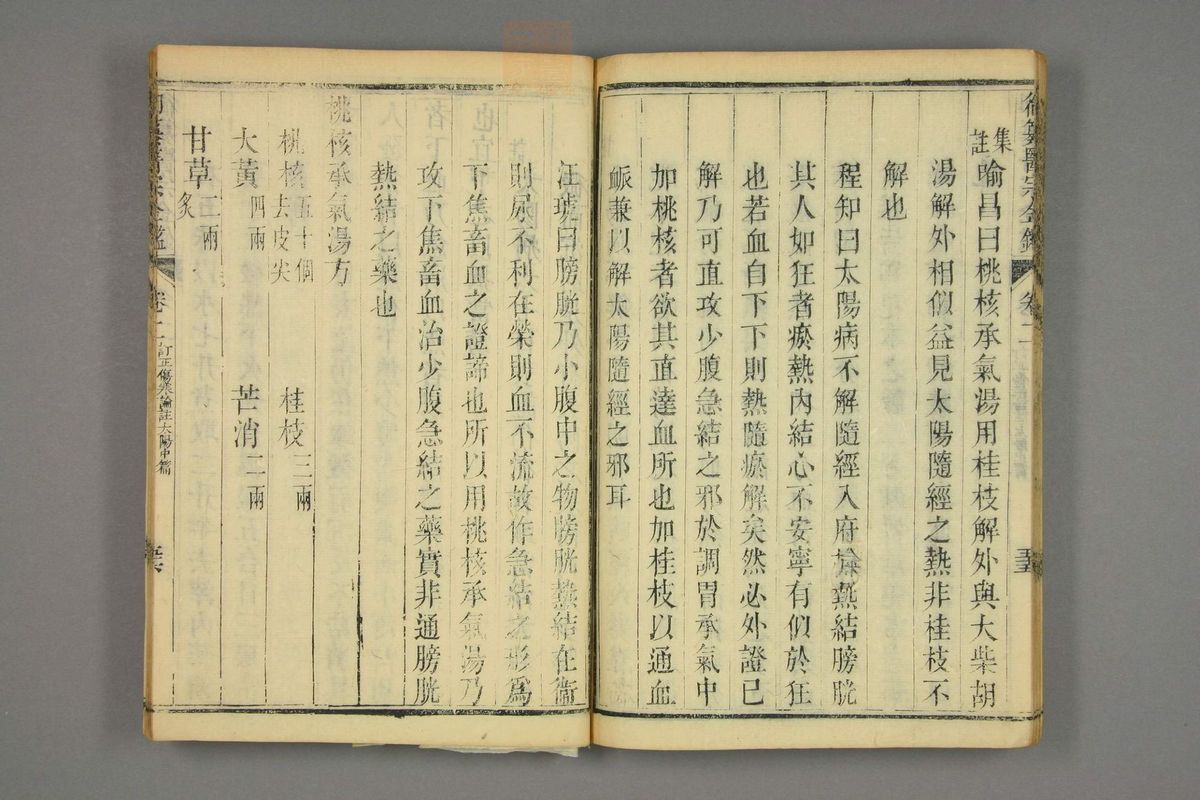 御纂醫宗金鑑 卷二 五
集註 喻昌曰桃核承氣湯用桂枝解外與大柴胡
湯解外相似益見太陽隨經之熱非桂枝不
解也
程知曰太陽病不解隨經入府故熱結膀胱
其人如狂者瘀熱內結心不安寧有似於狂
也若血自下下則熱隨瘀解矣然必外證已
解乃可直攻少腹急結之邪於調胃承氣中
加桃核者欲其直達血所也加桂枝以通血
脈兼以解太陽隨經之邪耳
汪琥曰膀胱乃小腹中之物膀胱熱結在衞
則尿不利在榮則血不流故作急結之形爲
下焦畜血之證諦也所以用桃核承氣湯乃
攻下焦畜血治少腹急結之藥實非通膀胱
熱結之藥也
桃核承氣湯方
桃核五十個去皮尖 桂枝三兩
大黃四兩 芒消二兩
甘草二兩炙
御纂醫宗金鑑 卷二 訂正傷寒論註太陽中篇